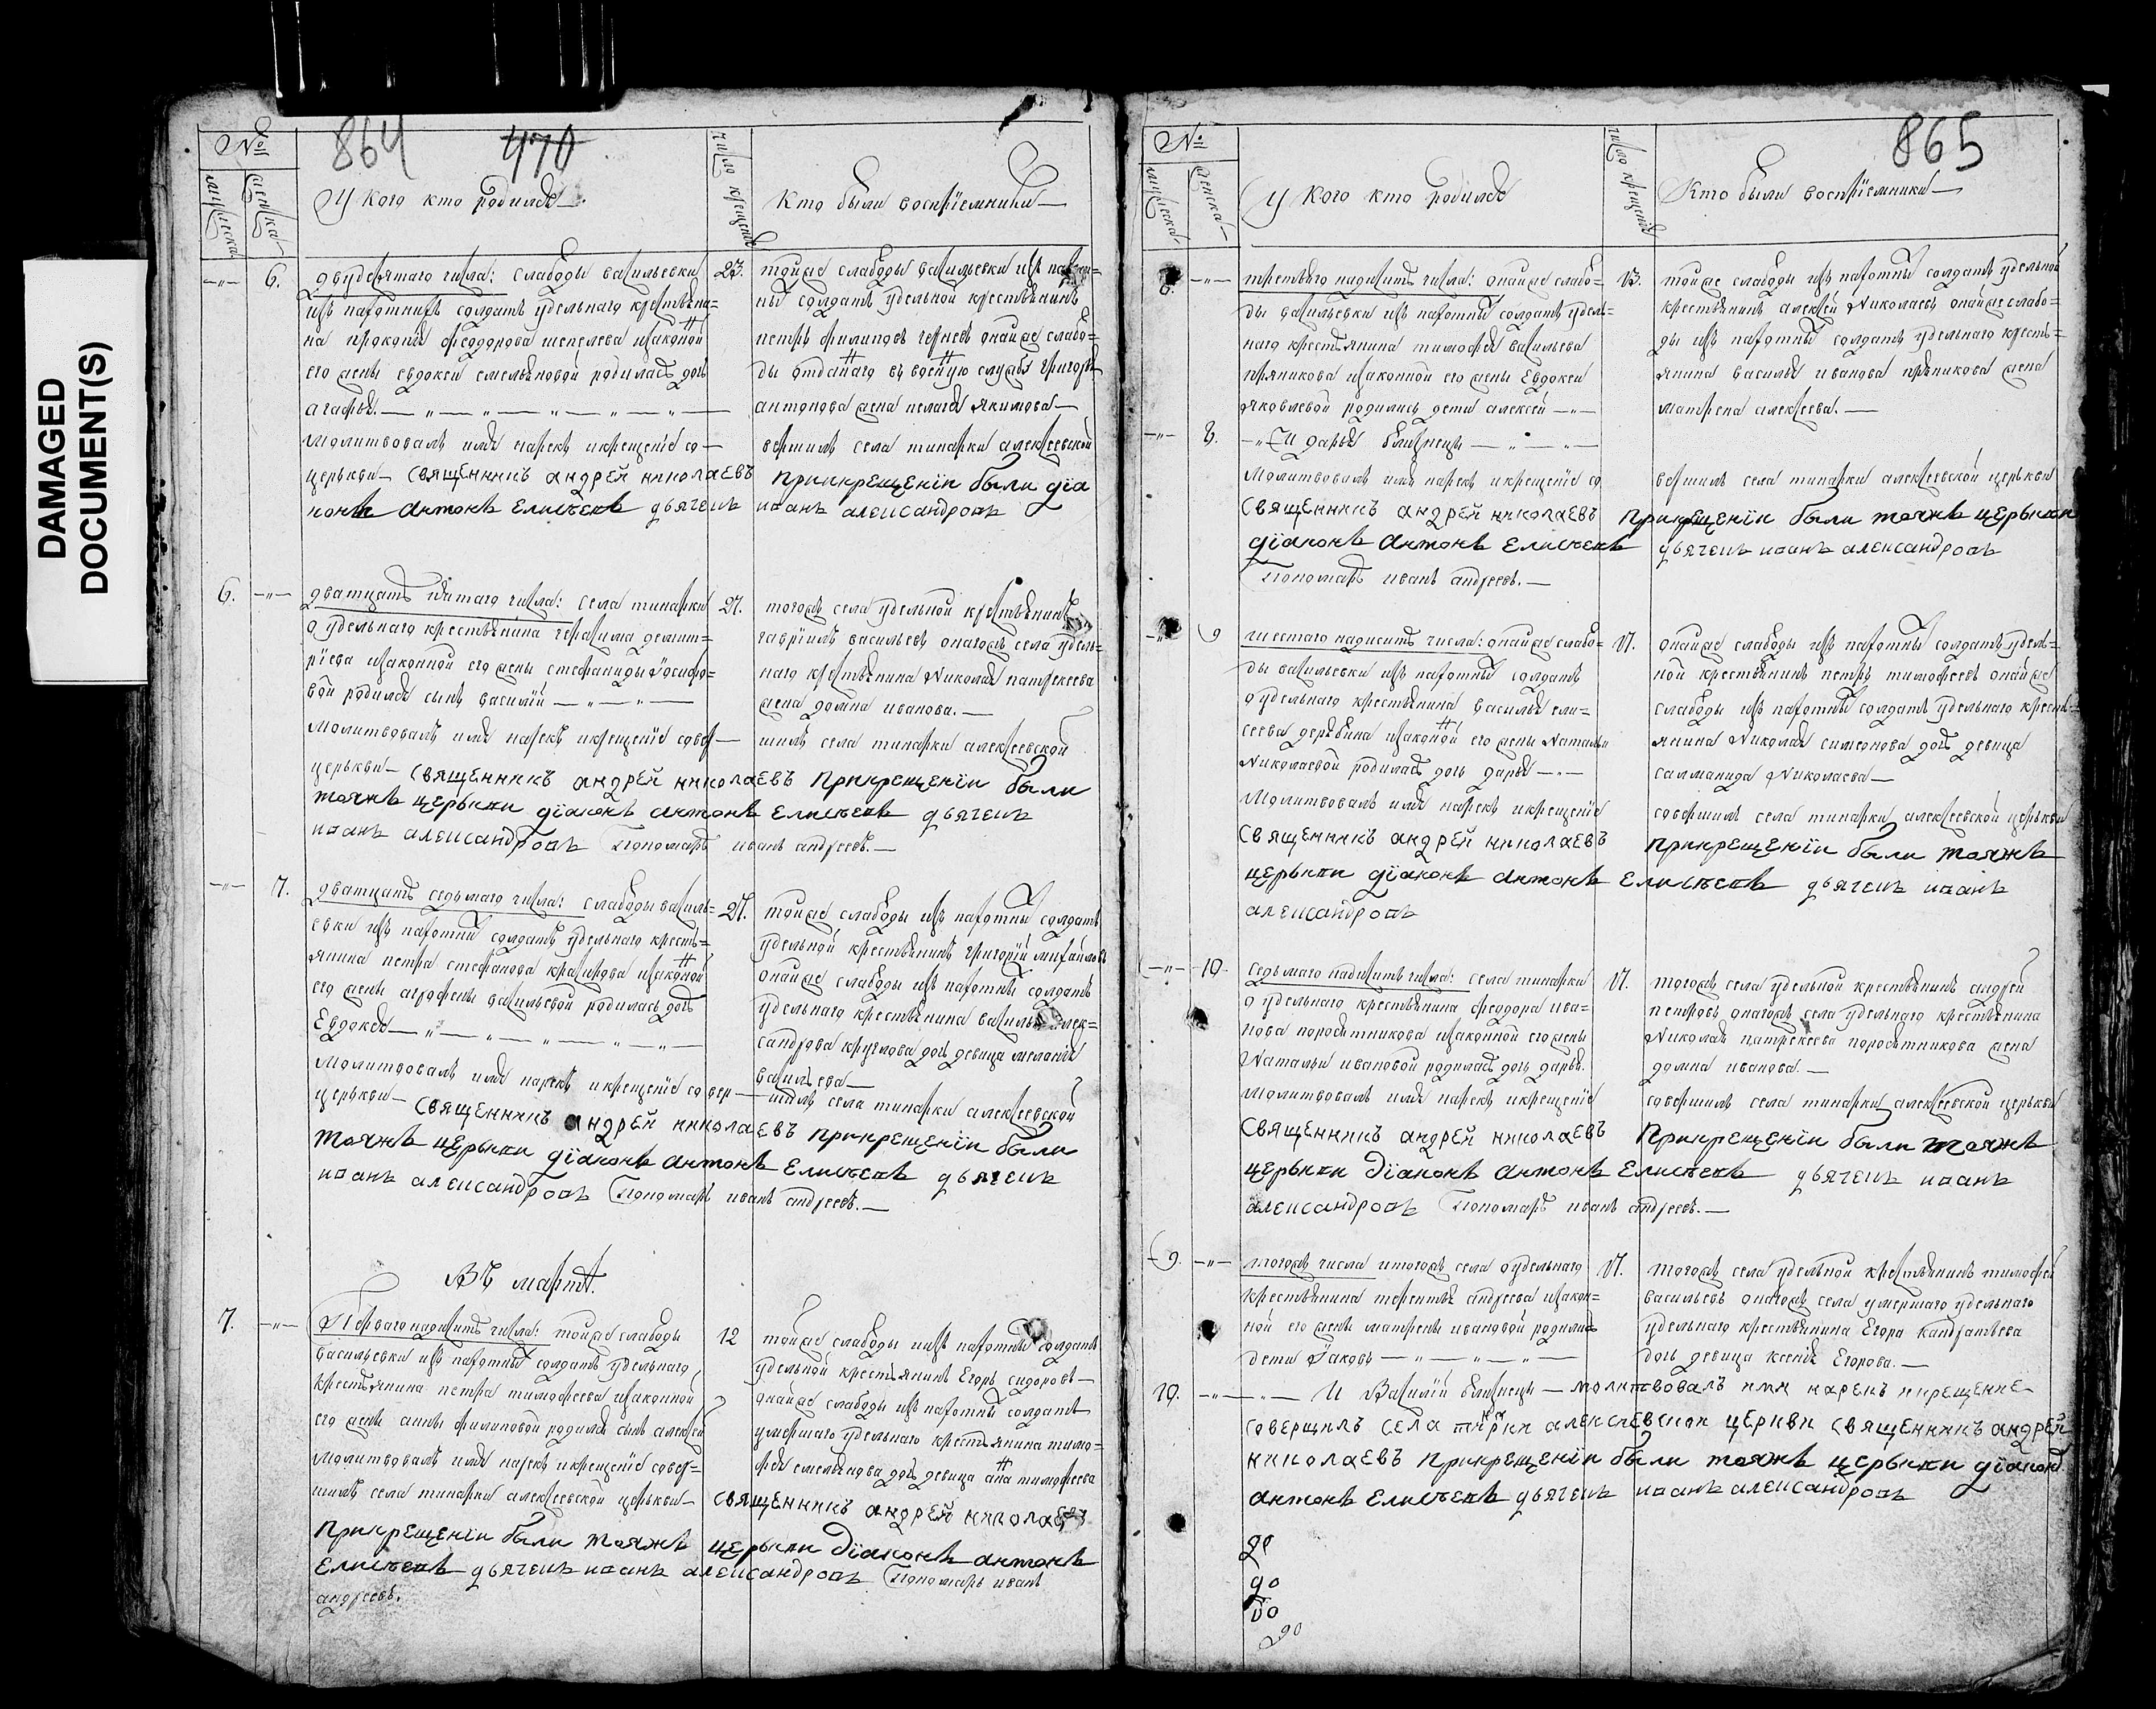 DAMAGED
DOCUMENT(S)
864 470
№
мужеска
женска
У Кого кто родился
число крещения
Кто были восприемники
6.
двудесятаго числа: слабоды васильевки
изъ пахотныхъ солдатъ удельнаго крестьяни=
на прокопия феодорова шепелева изаконой
его жены евдокеи емельяновой родилась дочь
агафья.
молитвовалъ имя нарекъ икрещение со
церькви священникъ андрей николаевъ
23.
тоиже слабоды васильевки изъ пахот=
ныхъ солдатъ удельной крестьянинъ
петръ филиповъ онаиже слабо=
ды отданаго въ военую служб григорья
антонова жена пелагея якимова
вершилъ села тинарки алексеевской
прикрещении были діа
конъ антонъ елисеевъ дьячекъ иоанъ александровъ
6.
дватцать пятаго числа: села тинарки
удельнаго крестьянина герасима демит=
рїева изаконной его жены стефаниды Иосифо=
вой родился сынъ василий
молитвовалъ имя нарекъ икрещение совер
церькви священникъ андрей николаевъ прикрещеніи были
тояжъ церькви діаконъ антонъ елисеевъ дьячекъ
иоанъ александровъ пономарь иванъ андреевъ.
27.
тогожъ села удельной крестьянинъ
гаврїилъ васильевъ онагожъ села удель=
наго крестьянина Николая патрекеева
жена домна иванова.
шилъ села тинарки алексеевской
7.
дватцать седьмаго числа: слабоды василь=
евки изъ пахотныхъ солдатъ удельнаго кресть=
янина петра стефанова изаконой
его жены агрофены васильевой родилась дочь
Евдокея
молитвовалъ имя нарекъ икрещение совер
церькви священникъ андрей николаевъ прикрещеніи были
тояжъ церькви діаконъ антонъ елисеевъ дьячекъ
иоанъ александровъ пономарь иванъ андреевъ.
27.
тоиже слабоды изъ пахотныхъ солдатъ
удельной крестьянинъ григорїй михайловъ
онаиже слабоды изъ пахотныхъ солдатъ
удельнаго крестьянина василья алек=
сандрова круглова дочь девица мелания
васильева
шилъ села тинарки алексеевской
Въ марте.
7.
Перваго надесять числа: тоиже слабоды
васильевки изъ пахотныхъ солдатъ удельнаго
крестьянина петра тимофеева изаконной
его жены анны филиповой родился сынъ алексей
молитвовалъ имя нарекъ икрещение совер=
шилъ села тинарки алексеевской церькви священникъ андрей николаевъ
прикрещеніи были тояжъ церькви діаконъ антонъ
елисеевъ дьячекъ иоанъ александровъ пономарь иванъ
андреевъ.
12
тоиже слабоды изъ пахотныхъ солдатъ
удельной крестьянинъ Егоръ сидоровъ
онаиже слабоды изъ пахотныхъ солдатъ
умершаго удельнаго крестьянина тимо=
фея емельянова дочь девица анна тимофеева
865
№
мужеска
женска
У Кого кто родился
число крещения
Кто были восприемники
8.
третьяго надесять числа: онаиже слабо=
ды васильевки изъ пахотныхъ солдатъ удель=
наго крестьянина тимофея васильева
пряникова изаконной его жены Евдокеи
яковлевой родились дети алексей
8.
И дарья близнецы
молитвовалъ имя нарекъ икрещение со
священникъ андрей николаевъ прикрещеніи были тояжъ церькви
діаконъ антонъ елисеевъ дьячекъ иоанъ александровъ
пономарь иванъ андреевъ.
13.
тоиже слабоды изъ пахотныхъ солдатъ удельной
крестьянинъ алексей Николаевъ онаиже слабо=
ды изъ пахотныхъ солдатъ удельнаго кресть=
янина василья иванова пряникова жена
матрена алексеева.
вершилъ села тинарки алексеевской церькви
9
шестаго надесять числа: онаиже слабо=
ды васильевки изъ пахотныхъ солдатъ
удельнаго крестьянина василья ели=
сеева дерябина изаконой его жены Натальи
Николаевой родилась дочь дарья
молитвовалъ имя нарекъ икрещение
священникъ андрей николаевъ прикрещеніи были тояжъ
церькви діаконъ антонъ елисеевъ дьячекъ иоанъ
александровъ
17.
онаиже слабоды изъ пахотныхъ солдатъ удель=
ной крестьянинъ петръ тимофеевъ онаиже
слабоды изъ пахотныхъ солдатъ удельнаго кресть=
янина Николая симеонова дочь девица
салманида Николаева
совершилъ села тинарки алексеевской церькви
10
седьмаго надесять числа: села тинарки
удельнаго крестьянина феодора ива=
нова поросятникова изаконной его жены
Натальи ивановой родилась дочь дарья.
молитвовалъ имя нарекъ икрещение
священникъ андрей николаевъ прикрещеніи были тояжъ
церькви діаконъ антонъ елисеевъ дьячекъ иоанъ
александровъ пономарь иванъ андреевъ.
17.
тогожъ села удельной крестьянинъ андрей
петровъ онагожъ села удельнаго крестьянина
Николая патрекеева поросятникова жена
домна иванова.
совершилъ села тинарки алексеевской церькви
9.
тогожъ числа итогожъ села удельнаго
крестьянина терентья андреева изакон=
ной его жены матрены ивановой родились
дети Яковъ
17.
тогожъ села удельной крестьянинъ тимофей
васильевъ онагожъ села умершаго удельнаго
удельнаго крестьянина Егора Кандратьева
дочь девица ксения Егорова.
10.
И Василий близнецы молитвовалъ имя нарекъ икрещение
совершилъ села тинарки алексеевской церкви священникъ андрей
николаевъ прикрещеніи были тояжъ церькви діаконъ
антонъ елисеевъ дьячекъ иоанъ александровъ